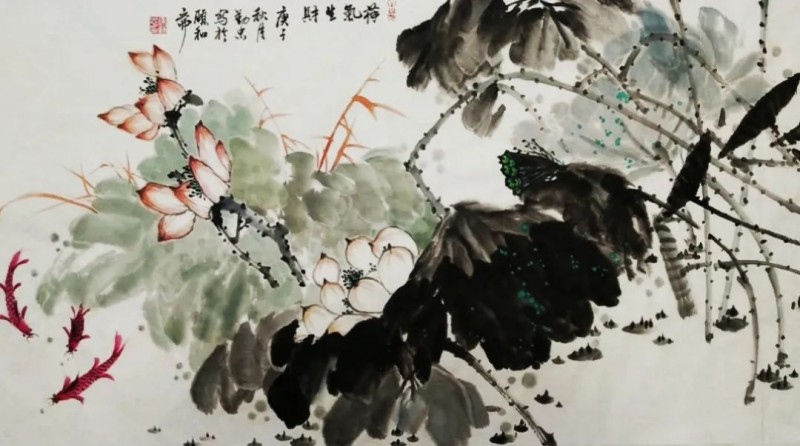 荷氣生財
庚子
秋月
勤忠
寫於
頤和